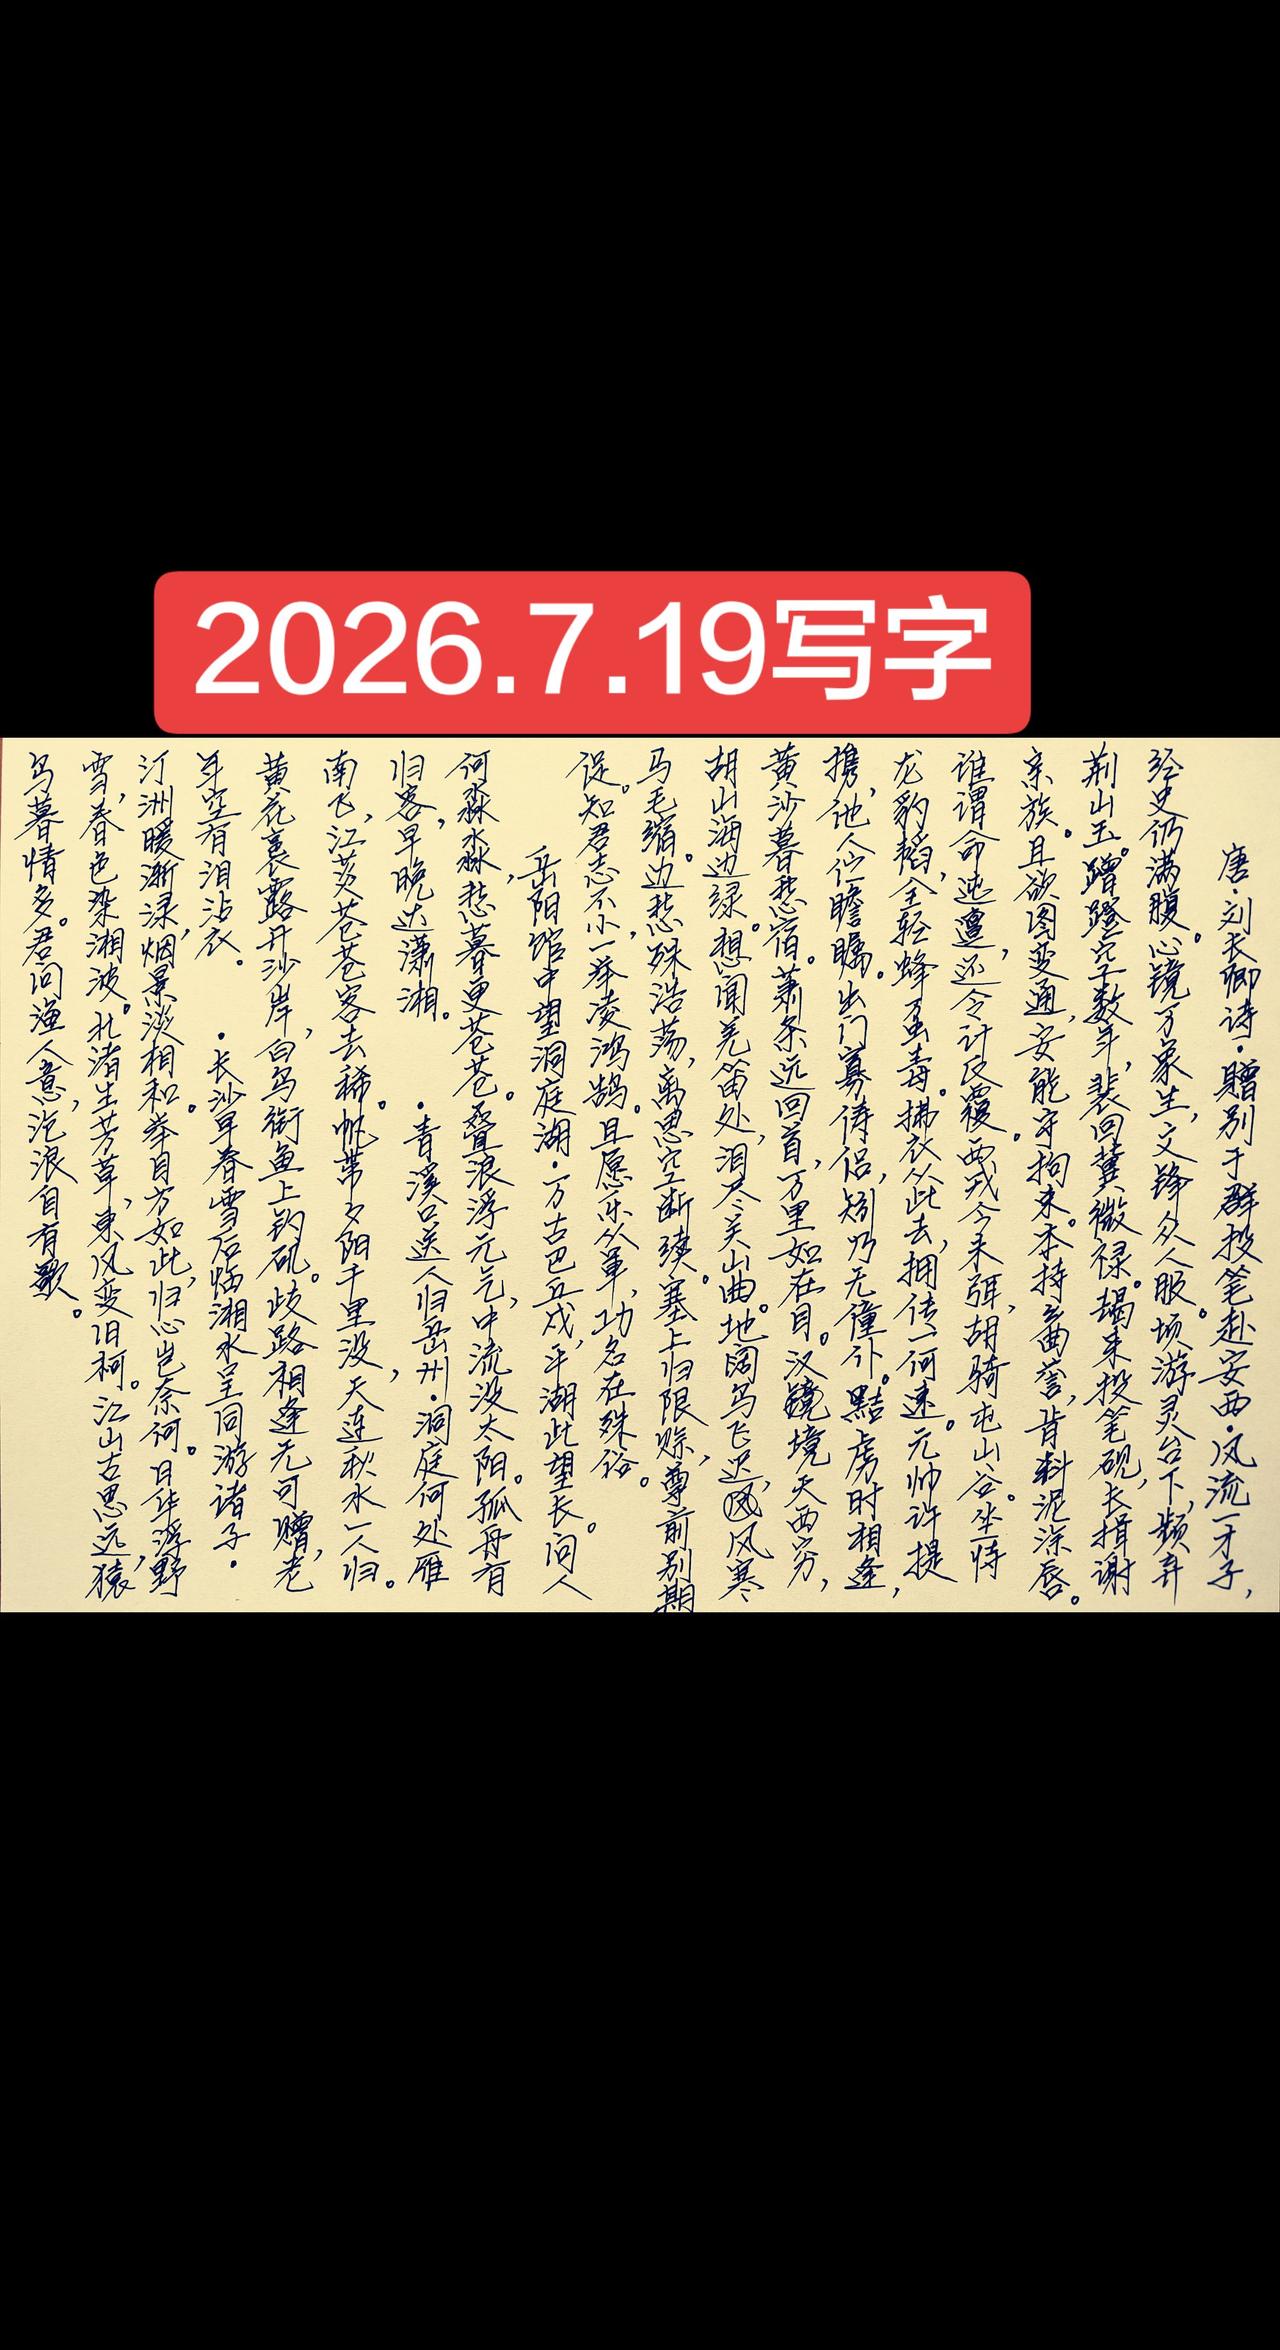 2026.7.19写字
唐·刘长卿诗·赠别于群投笔赴安西·风流一才子，
经史仍满腹。心镜万象生，文锋众人服。顷游灵台下，频弃
荆山玉。蹭蹬空数年，裴回冀微禄。朅来投笔砚，长揖谢
亲族。且欲图变通，安能守拘束。本持乡曲誉，肯料泥涂辱。
谁谓命迍邅，还令计反覆。西戎今未弭，胡骑屯山谷。坐恃
龙豹韬，全轻蜂虿毒。拂衣从此去，拥传一何速。元帅许提
携，他人伫瞻瞩。出门寡俦侣，矧乃无僮仆。黠虏时相逢，
黄沙暮愁宿。萧条远回首，万里如在目。汉境天西穷，
胡山海边绿。想闻羌笛处，泪尽关山曲。地阔鸟飞迟，风寒
马毛缩。边愁殊浩荡，离思空断续。塞上归限赊，尊前别期
促。知君志不小，一举凌鸿鹄。且愿乐从军，功名在殊俗。
岳阳馆中望洞庭湖·万古巴丘戍，平湖此望长。问人
何淼淼，愁暮更苍苍。叠浪浮元气，中流没太阳。孤舟有
归客，早晚达潇湘。·青溪口送人归岳州·洞庭何处雁
南飞，江菼苍苍客去稀。帆带夕阳千里没，天连秋水一人归。
黄花裛露开沙岸，白鸟衔鱼上钓矶。歧路相逢无可赠，老
年空有泪沾衣。·长沙早春雪后临湘水呈同游诸子·
汀洲暖渐渌，烟景淡相和。举目方如此，归心岂奈何。日华浮野
雪，春色染湘波。北渚生芳草，东风变旧柯。江山古思远，猿
鸟暮情多。君问渔人意，沧浪自有歌。